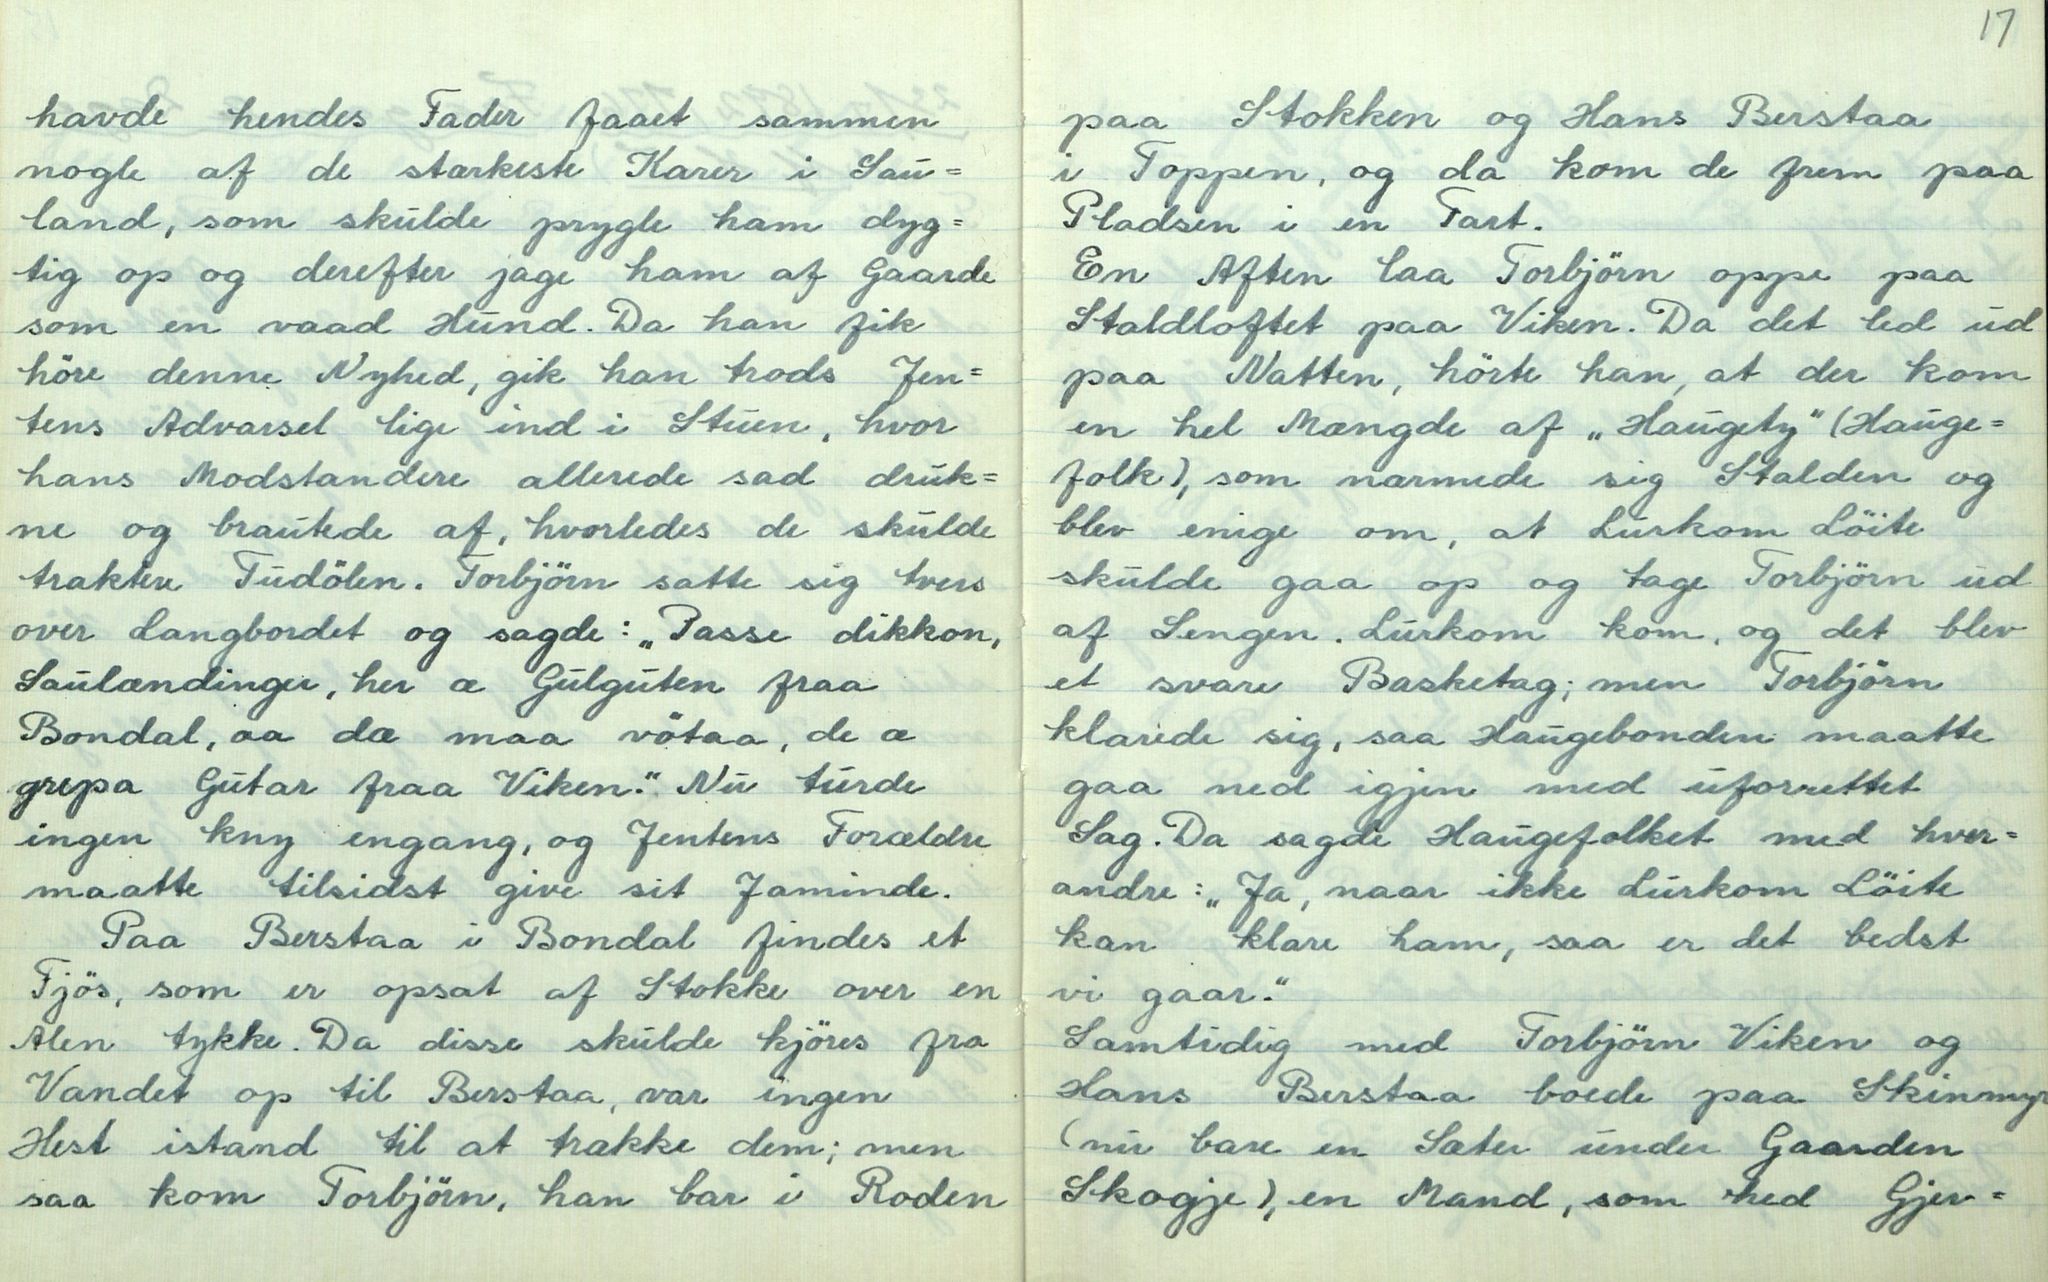 havde hendes Fader faaet sammen
nogle af de stærkeste Karer i Sau=
land, som skulde prygle ham dyg=
tig op og derefter jage ham af Gaarde
som en vaad Hund. Da han fik
höre denne Nyhed, gik han trods Jen=
tens Advarsel lige ind i Stuen, hvor
hans Modstandere allerede sad druk=
ne og brautede af, hvorledes de skulde
traktere Tudölen. Torbjörn satte sig tvers
över Langbordet og sagde: „Passe dikkon,
Saulændinger, her æ Gulguten fraa
Bondal, aa dæ maa vötaa, de æ
grepa Gutar fraa Viken." Nu turde
ingen kny engang, og Jentens Forældre
maatte tilsidst give sit Jaminde.
Paa Berstaa i Bondal findes et
Fjös, som er opsat af Stokke over en
Alen tykke. Da disse skulde kjöres fra
Vandet op til Berstaa, var ingen
Hest istand til at trække dem; men
saa kom Torbjörn, han bar i Roden
17
paa Stokken og Hans Berstaa
i Toppen, og da kom de frem paa
Pladsen i en Fart.
En Aften laa Torbjörn oppe paa
Staldloftet paa Viken. Da det led ud
paa Natten, hörte han, at der kom
en hel Mængde af „Haugety" (Hauge=
folk), som nærmede sig Stalden og
blev enige om, at Lurkom Löite
skulde gaa op og tage Torbjörn ud
af Sengen. Lurkom kom, og det blev
et svare Basketag; men Torbjörn
klarede sig, saa Haugebonden maatte
gaa ned igjen med uforrettet
Sag. Da sagde Haugefolket med hver=
andre: „Ja, naar ikke Lurkom Löite
kan klare ham, saa er det bedst
vi gaar."
Samtidig med Torbjörn Viken og
Hans Berstaa boede paa Skinmyr
(nu bare en Sæter under Gaarden
Skogje), en Mand, som hed Gjer=